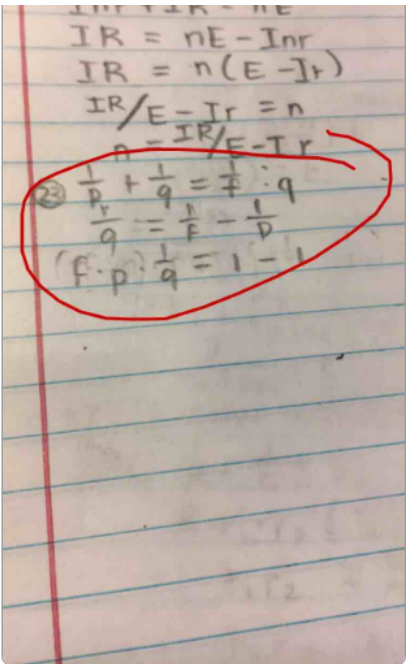 Inr + IR = nE
IR = nE - Inr
IR = n(E - Ir)
IR/E - Ir = n
n = IR/E - Ir
23 1/p + 1/q = 1/f : q
1/q = 1/f - 1/p
(f·p · 1/q = 1 - 1